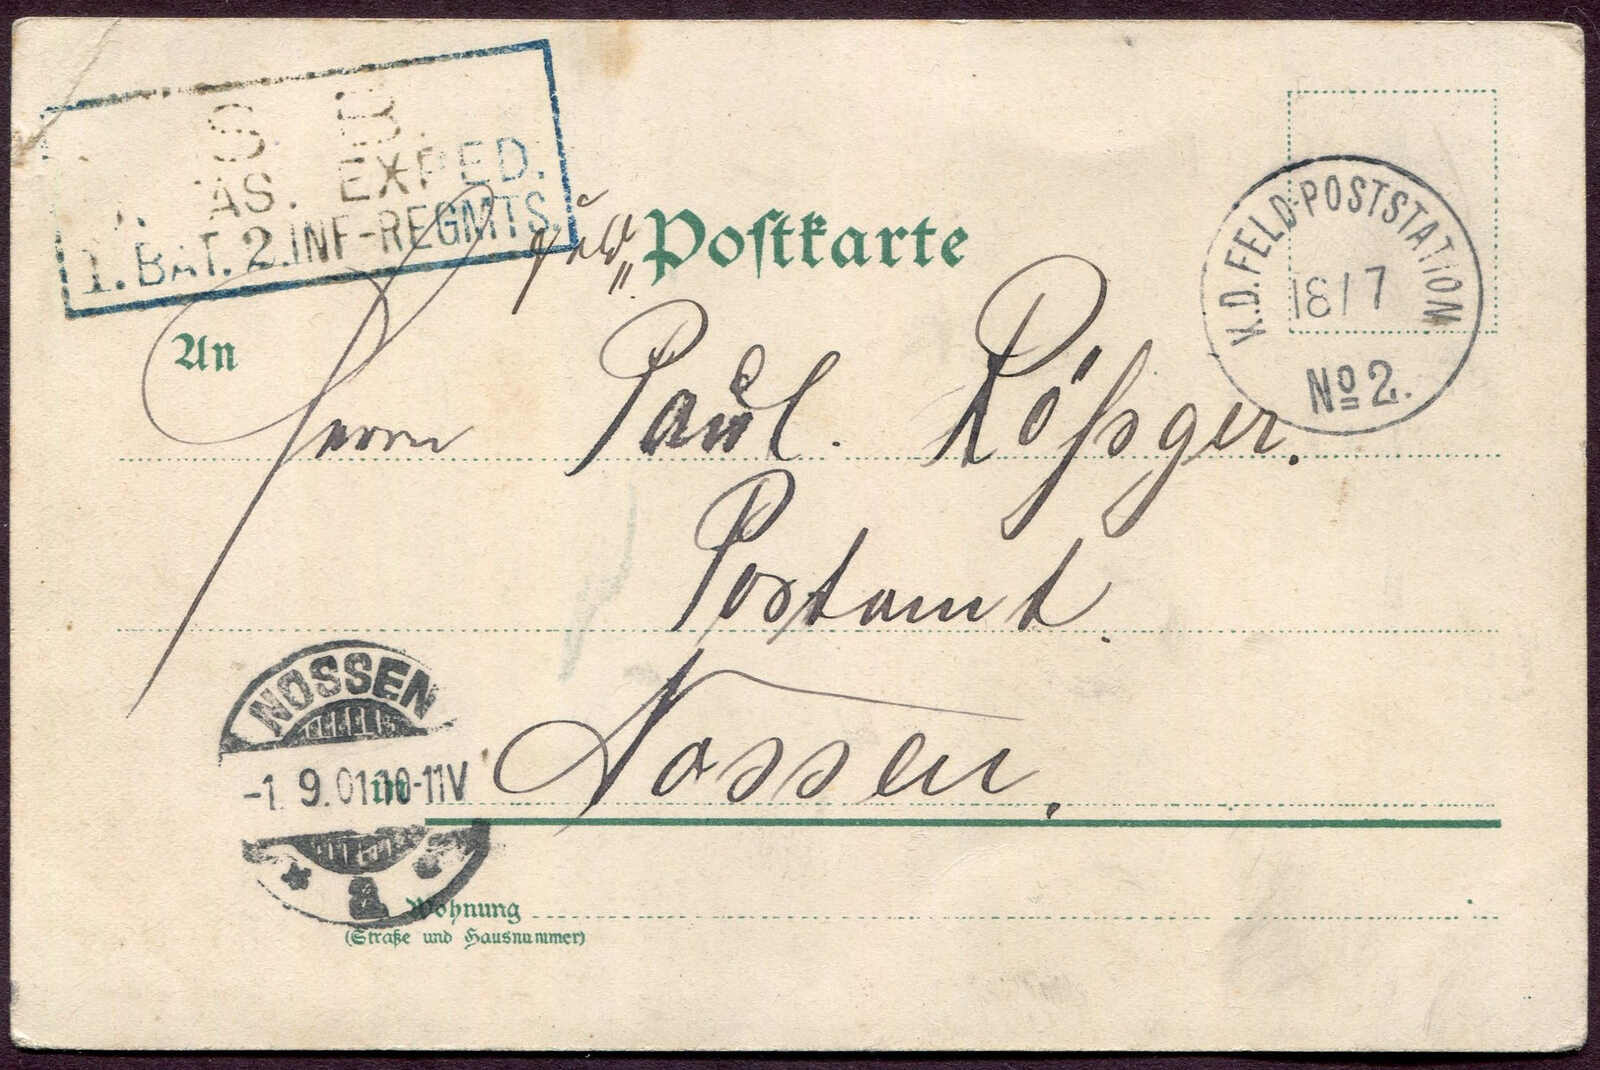 S. B.
AS. EXPED.
1. BAT. 2. INF-REGMTS.
Feld Postkarte
K.D. FELD-POSTSTATION
18/7
No 2.
An
Herrn Paul Rößger.
Postamt
Nossen.
NOSSEN
-1. 9. 01 10-11V
a
in
Wohnung
(Straße und Hausnummer)